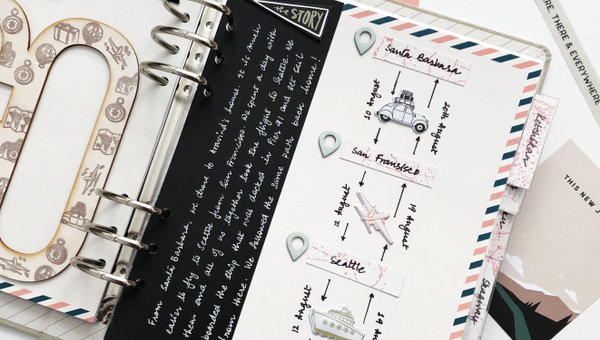 the STORY
From Santa Barbara, we drove to Aravind's home. It is much
easier to fly to Seattle from San Francisco. We spent a day with
them and all of us together took the flight to Seattle. We
boarded the ship that was docked in Pier 91 and set sail
from there. We followed the same path back home!
Santa Barbara
August
20th August
San Fransisco
12 August
19 August
Seattle
12 August
19
Ketchikan
Skagway
ERE, THERE & EVERYWHERE
THIS NEW J